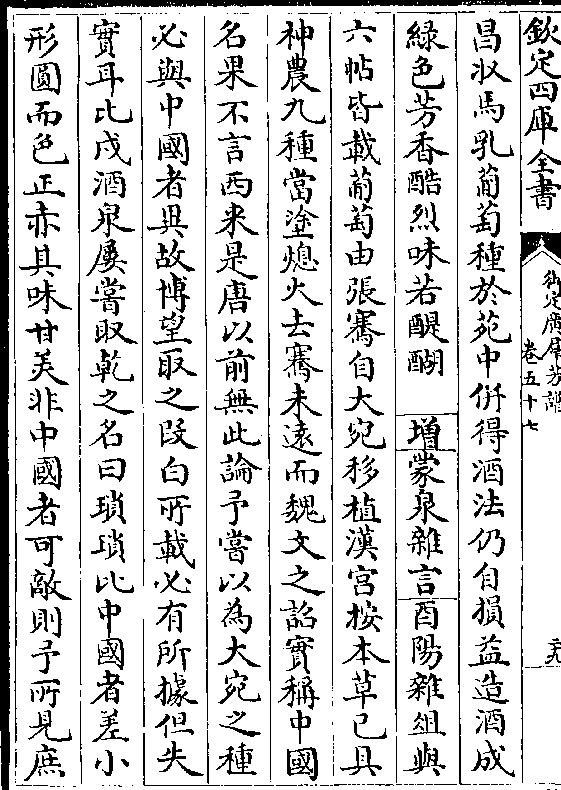 欽定四庫全書
御定廣羣芳譜
卷五十七
昌收馬乳葡萄種於苑中併得酒法仍自損益造酒成
綠色芳香酷烈味若醍醐 增蒙泉雜言酉陽雜俎與
六帖皆載葡萄由張騫自大宛移植漢宮按本草已具
神農九種當塗熄火去騫未遠而魏文之詔實稱中國
名果不言西來是唐以前無此論予嘗以為大宛之種
必與中國者異故博望取之段白所載必有所據但失
實耳比戍酒泉屢嘗取乾之名曰瑣瑣比中國者差小
形圓而色正赤其味甘美非中國者可敵則予所見庶